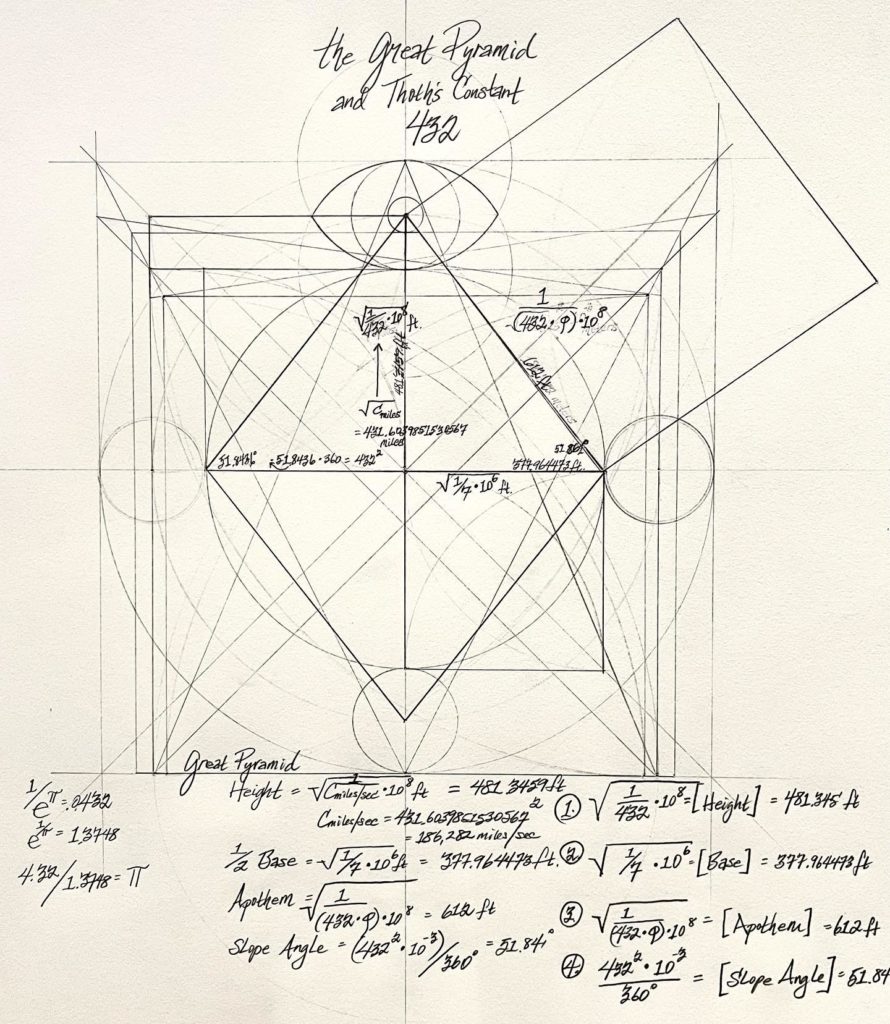 the Great Pyramid
and Thoth's Constant
432
√1/432 · 10⁸ ft.
1/(432 · φ) · 10⁸
√C miles
= 431.6039851530567
miles
51.8436°
51.8436 · 360 = 432²
51.861°
377.964473 ft.
√1/7 · 10⁶ ft.
Great Pyramid
Height = √1/Cmiles/sec · 10⁸ ft = 481.3459 ft
Cmiles/sec = 431.6039851530567²
= 186,282 miles/sec
1/2 Base = √1/7 · 10⁶ ft = 377.964473 ft.
Apothem = √1/(432 · φ) · 10⁸ = 612 ft
Slope Angle = (432² · 10⁻³)/360° = 51.841°
1/e^π = .0432
e^1/π = 1.3748
4.32/1.3748 = π
① √1/432 · 10⁸ = [Height] = 481.345 ft
② √1/7 · 10⁶ = [Base] = 377.964473 ft
③ √1/(432 · φ) · 10⁸ = [Apothem] = 612 ft
④ 432² · 10⁻³/360° = [Slope Angle] = 51.84